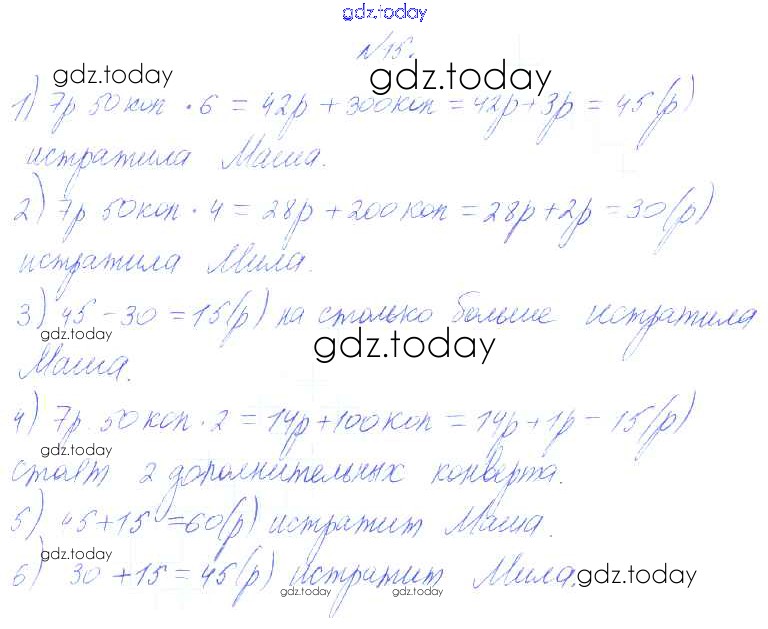 gdz.today
№15.
gdz.today gdz.today
1) 7р 50коп · 6 = 42р + 300коп = 42р + 3р = 45 (р)
истратила Маша.
2) 7р 50коп · 4 = 28р + 200коп = 28р + 2р = 30 (р)
истратила Мила.
3) 45 - 30 = 15 (р) на столько больше истратила
gdz.today gdz.today
Маша.
4) 7р. 50коп · 2 = 14р + 100коп = 14р + 1р = 15 (р)
gdz.today
стоят 2 дополнительных конверта.
5) 45 + 15 = 60 (р) истратит Маша.
gdz.today
6) 30 + 15 = 45 (р) истратит Мила. gdz.today
gdz.today gdz.today